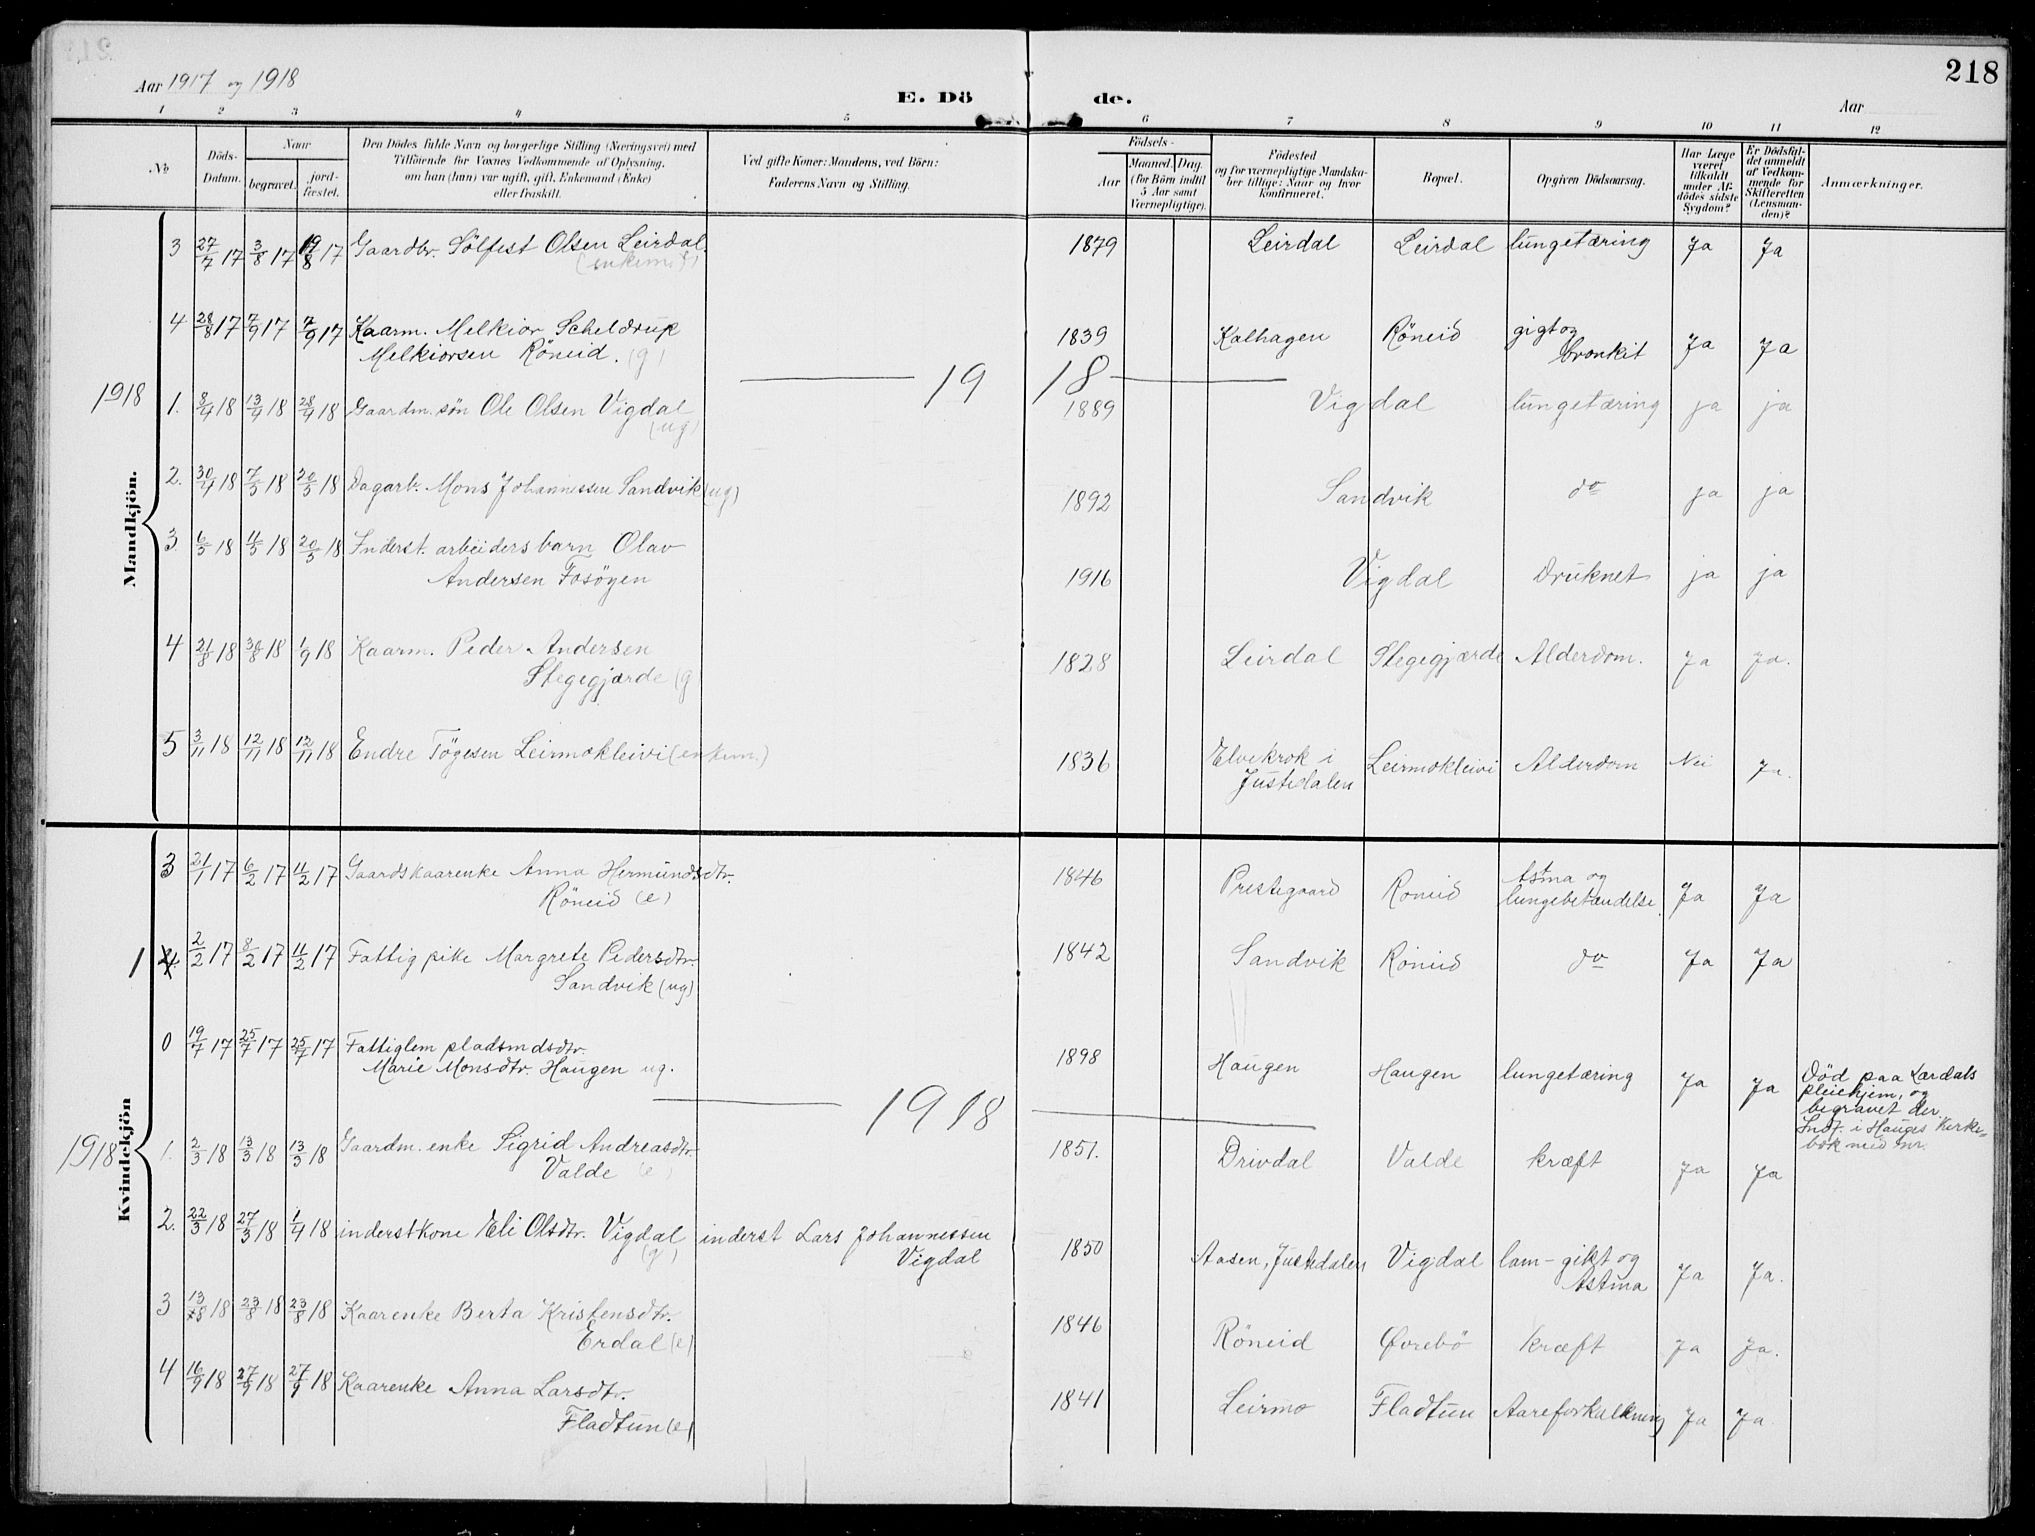 218
Aar 1917 og 1918
E. Dö de.
Aar
1 2 3 4 5 6 7 8 9 10 11 12
No
Döds-
Datum.
Naar
begravet.
jord-
fæstet.
Den Dödes fulde Navn og borgerlige Stilling (Næringsvei) med
Tilföiende for Voxnes Vedkommende af Oplysning,
om han (hun) var ugift, gift, Enkemand (Enke)
eller fraskilt.
Ved gifte Koner: Mandens, ved Börn:
Faderens Navn og Stilling.
Födsels-
Aar
Maaned. Dag.
(for Börn indtil
5 Aar samt
Værnepligtige).
Födested
og for værnepligtige Mandska-
ber tillige: Naar og hvor
konfirmeret.
Bopæl.
Opgiven Dödsaarsag.
Har Læge
været
tilkaldt
under Af-
dödes sidste
Sygdom?
Er Dödsfal-
det anmeldt
af Vedkom-
mende for
Skifteretten
(Lensman-
den)?
Anmærkninger.
Mandkjön.
3 27/7 17 3/8 17 19/8 17 Gaardbr. Sölfest Olsen Leirdal. 1879 Leirdal Leirdal lungetæring Ja Ja
(enkem.)
4 28/8 17 7/9 17 7/9 17 Kaarm. Melkior Scheldrup 1839 Kalhagen Röneid gigt og Ja Ja
Melkiorsen Röneid. (g) bronkit
19 18
1918
1. 8/4 18 13/4 18 28/4 18 Gaardm. sön Ole Olsen Vigdal 1889 Vigdal lungetæring ja ja
(ug)
2. 30/4 18 7/5 18 20/5 18 Dagarb. Mons Johannessen Sandvik (ug) 1892 Sandvik do ja ja
3 6/5 18 11/5 18 20/5 18 Inderst. arbeiders barn Olav
Andersen Fosöyen 1916 Vigdal Druknet ja ja
4 21/8 18 30/8 18 1/9 18 Kaarm. Peder Andersen 1828 Leirdal Stegegjærde Alderdom. Ja Ja.
Stegegjærde (g)
5 3/11 18 12/11 18 12/11 18 Endre Tögesen Leirmokleivi (enkem.) 1836 Elvekrok i Leirmokleivi Alderdom Nei Ja.
Justedalen
Kvindekjön
3 21/1 17 6/2 17 11/2 17 Gaardskaarenke Anna Hermundsdtr. 1846 Prestegaard Roneid Astma og Ja Ja
Röneid (e) lungebetændelse.
1 4 2/2 17 8/2 17 11/2 17 Fattig pike Margrete Pedersdtr. 1842 Sandvik Röneid do Ja Ja
Sandvik (ug)
0 19/7 17 25/7 17 25/7 17 Fattiglem pladsmdsdtr. 1898 Haugen Haugen lungetæring Ja Ja
Marie Monsdtr. Haugen ug.
Död paa Lærdals
pleiehjem, og
begravet der.
Indf. i Hauges Kirke-
bok med nr.
1918
1918
1. 2/3 18 13/3 18 13/3 18 Gaardm. enke Sigrid Andreasdtr 1851. Drivdal Valde kræft Ja Ja
Valde (e)
2. 22/3 18 27/3 18 1/4 18 inderstkone Eli Olsdtr. Vigdal inderst Lars Johannessen 1850 Aasen, Justedalen Vigdal lam-gikt og Ja Ja.
(g) Vigdal Astma
3 13/8 18 23/8 18 23/8 18 Kaarenke Berta Kristensdtr. 1846 Röneid Øvrebö kræft Ja Ja.
Erdal (e)
4 16/9 18 27/9 18 27/9 18 Kaarenke Anna Larsdtr. 1841 Leirmo Fladtun Aareforkalkning Ja Ja
Fladtun (e)